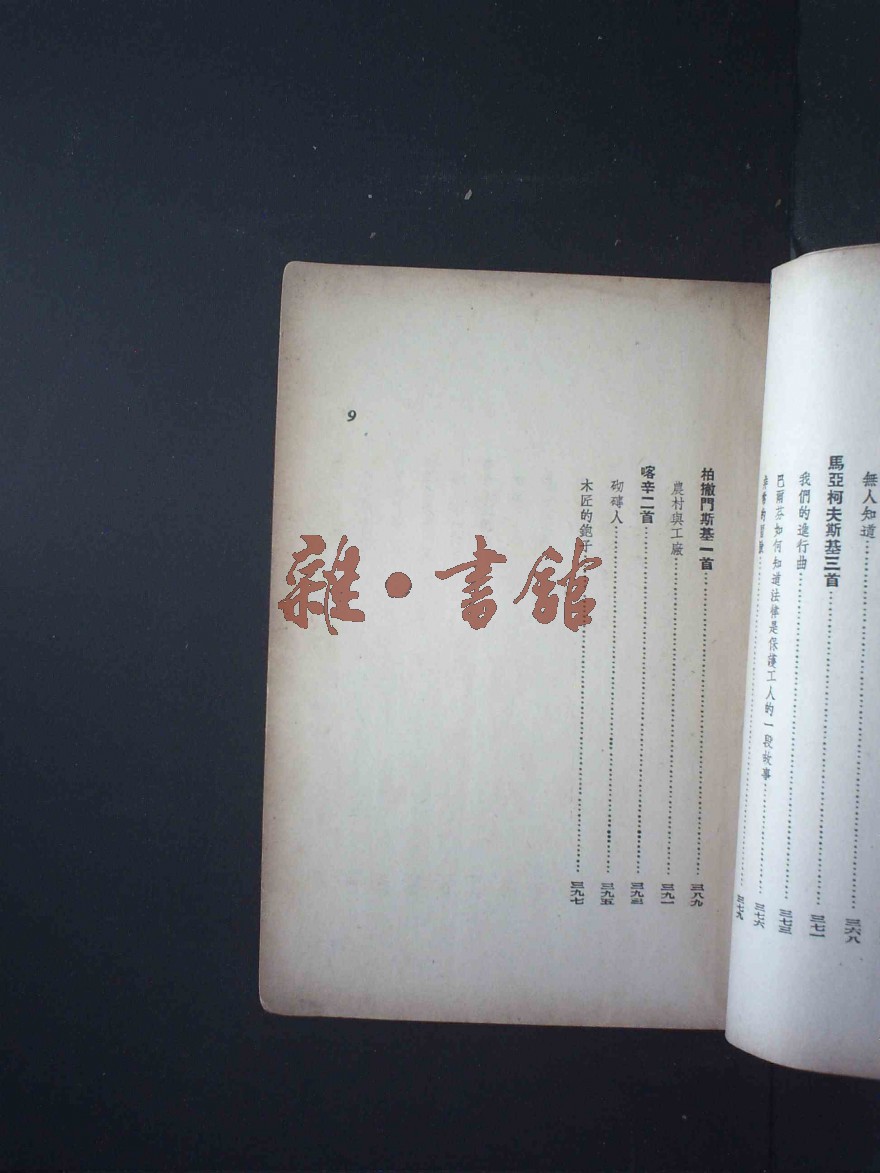 無人知道……三六八
馬亞柯夫斯基三首……三七一
我們的進行曲……三七三
巴爾芬如何知道法律是保護工人的一段故事……三七六
的……三七九
柏撒門斯基一首……三八九
農村與工廠……三九一
喀辛二首……三九三
砌磚人……三九五
木匠的鉋子……三九七
9
雜·書館